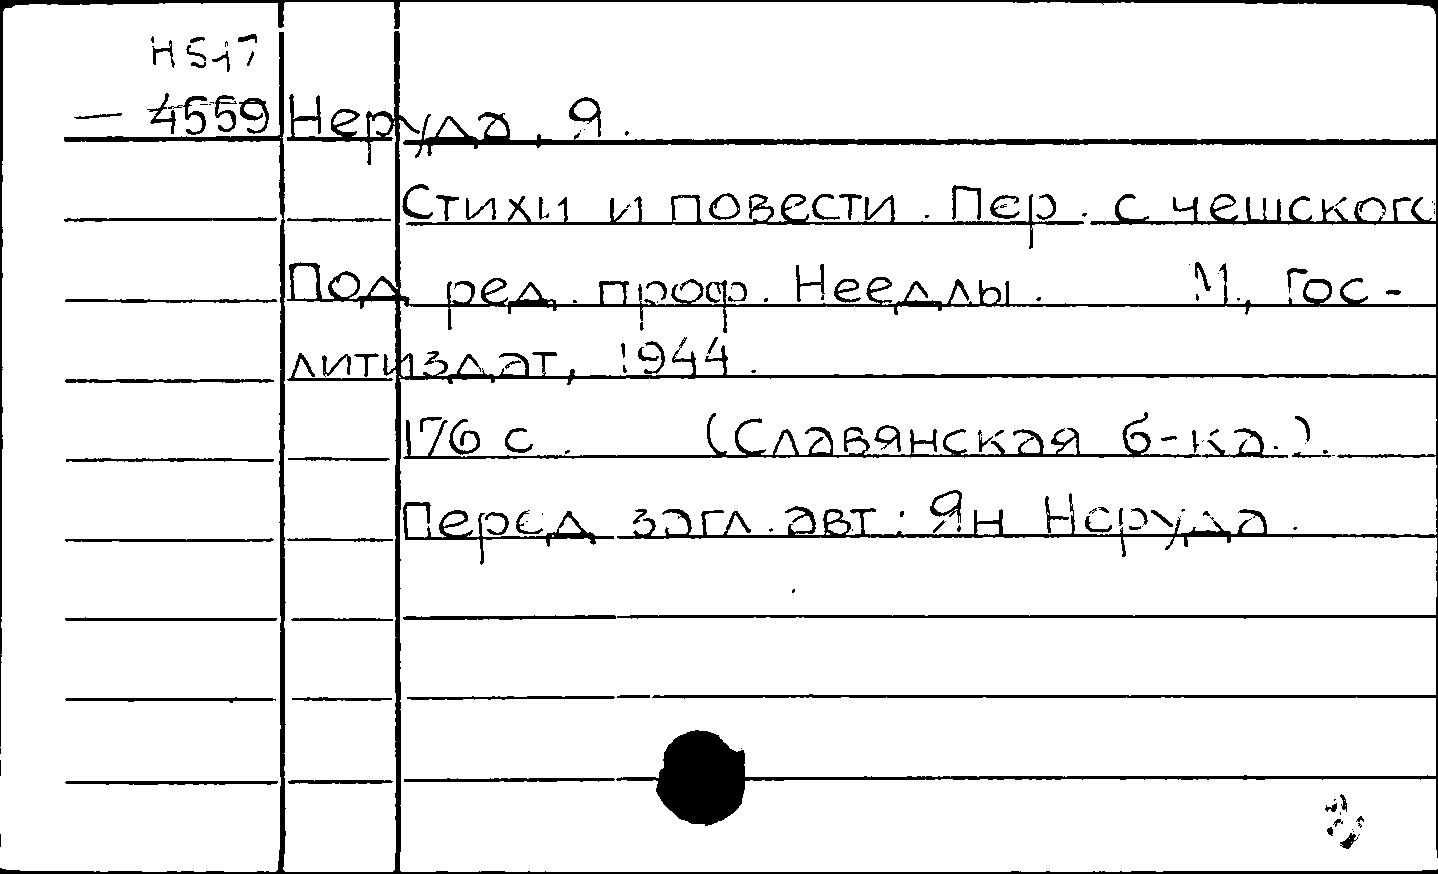 Н517
— 4559 Неруда, Я.
Стихи и повести. Пер. с чешского
Под ред. проф. Неедлы. М., Гос-
литиздат, 1944.
176 с. (Славянская б-ка.).
Перед загл. авт.: Ян Неруда.